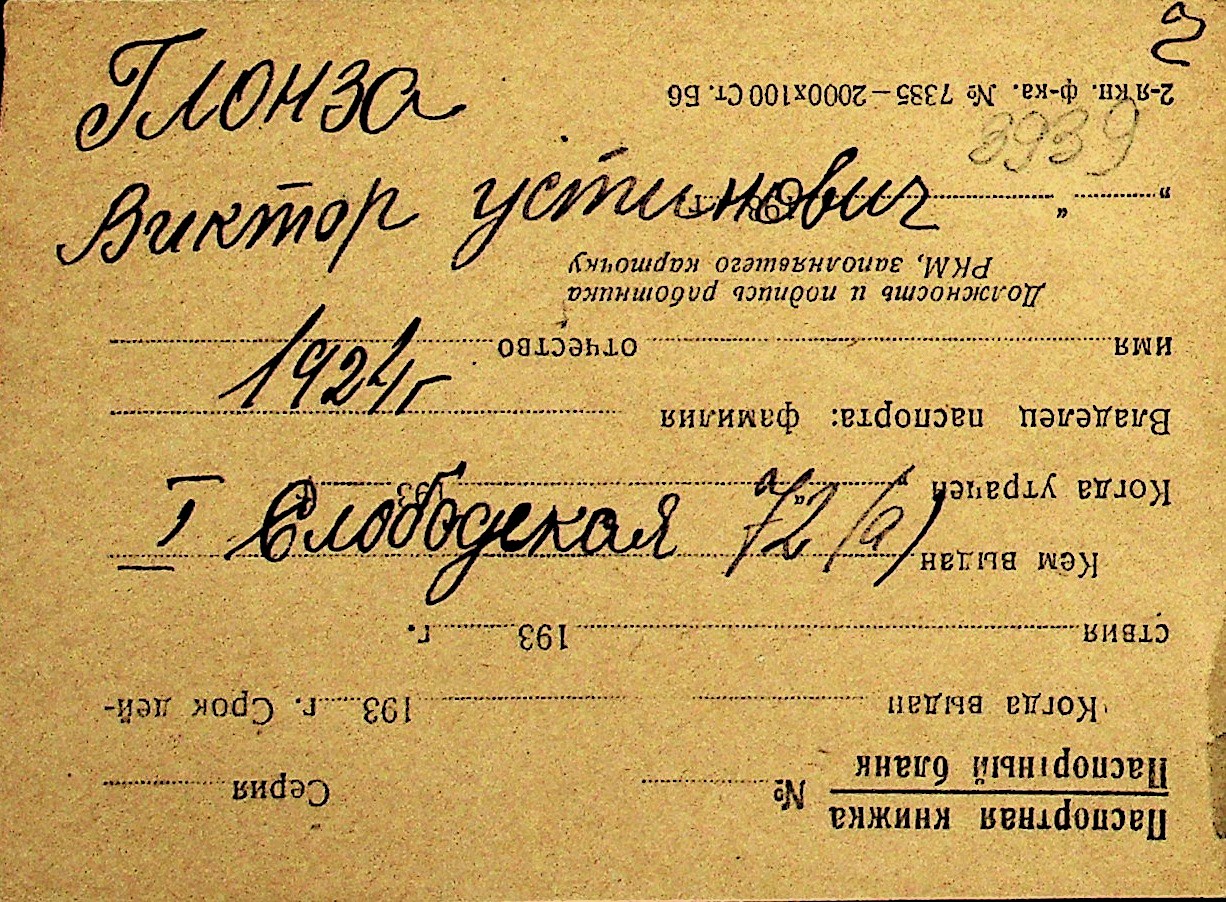 Глонза
Виктор Устинович
1924г
I Слободская 72 (а)
3939
Паспортная книжка
Паспортный бланк
№ Серия
Когда выдан 193 г. Срок дей-
ствия 193 г.
Кем выдан
Когда утрачен " " 193 г.
Владелец паспорта: фамилия
имя отчество
Должность и подпись работника
РКМ, заполнявшего карточку
" " 193 г.
2-я кн. ф-ка. № 7385—2000х100 Ст. Б6